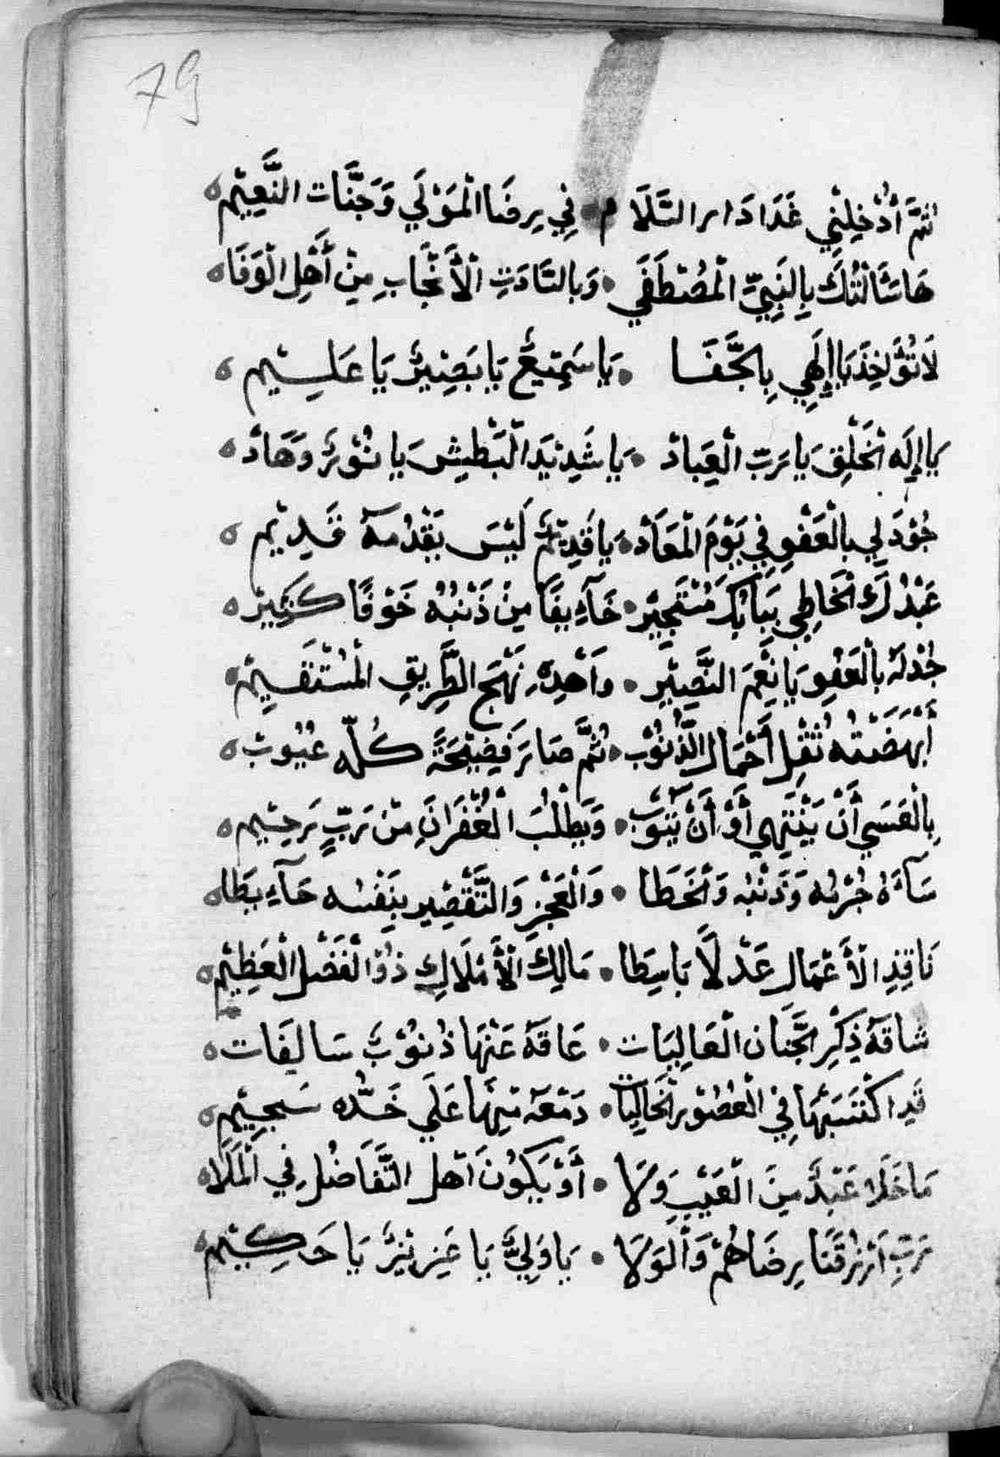 79
ثُمَّ أَدْخِلْنِي غَدًا دَار السَّلَام • فِي رِضَا الْمَوْلَي وَجَنَّات النَّعِيْم
هَا سَأَلْتُكَ بِالنَّبِيِّ الْمُصْطَفَي • وَبِالسَّادَتِ الْأَنْجَابِ مِنْ أَهْلِ الْوَفَا
لَا تُؤَاخِذْ يَا إِلَهِي بِالْجَفَا • يَا سَمِيْعٌ يَا بَصِيْرٌ يَا عَلِيْم
يَا إِلَه الْخَلْقِ يَا رَبّ الْعِبَادْ • يَا شَدِيْدَ الْبَطْشِ يَا نُوْرٌ وَهَادْ
جُوْدَ لِي بِالْعَفْوِ فِي يَوْمَ الْمَعَادْ • يَا قَدِيْمٌ لَيْسَ يَقْدُمهُ قَدِيْم
عَبْدُكَ الْخَاطِي بِبَابِكَ مُسْتَجِيْر • خَآءِيفًا مِنْ ذَنْبُهُ خَوْفًا كَثِيْر
جُدْ لَهُ بِالْعَفْوِ يَا نِعْمَ النَّصِيْرِ • وَاهْدِهِ نَهْجَ الطَّرِيقِ الْمُسْتَقِيْم
أَبْهَضَتْه ثُقْل أَحْمَال الذُّنُوْب • ثُمَّ صَارَ فَضِيْحَةً كُلّه عُيُوبْ
بِالْعَسَي أَنْ يَنْتَهِي أَوْ أَنْ يَتُوْب • وَيَطْلُبَ الْغُفْرَانَ مِنْ رَبٍّ رَحِيْم
سَآءَهُ جُرْمُه وَذَنْبُه وَالْخَطَا • وَالْعَجْزِ وَالتَّقْصِيرِ بِنَفْسُه حَآءِيطَا
نَاقِدِ الْأَعْمَالِ عَدْلًا بَاسِطَا • مَالِكَ الْأَمْلَاكِ ذُوْ الْفَضْلِ الْعَظِيْم
شَاقَهُ ذِكْرِ الْجَنَان الْعَالِيَات • عَاقَهُ عَنْهَا ذُنُوْبٌ سَالِفَات
قَدِ اكْتَسَبْهَا فِي الْعُصُوْر الْخَالِيَات • دَمْعَه مِنْهَا عَلَي خَدُّه سَجِيْم
مَا خَلَا عَبْدٌ مِنَ الْعَيْبِ وَلَا • أَوْ يَكُوْنَ اهْل التَّفَاضُلِ فِي الْمَلَا
رَبِّ ارْزُقْنَا رِضَاهُمْ وَالْوَلَا • يَا وَلِيٌّ يَا عَزِيْزٌ يَا حَكِيْم